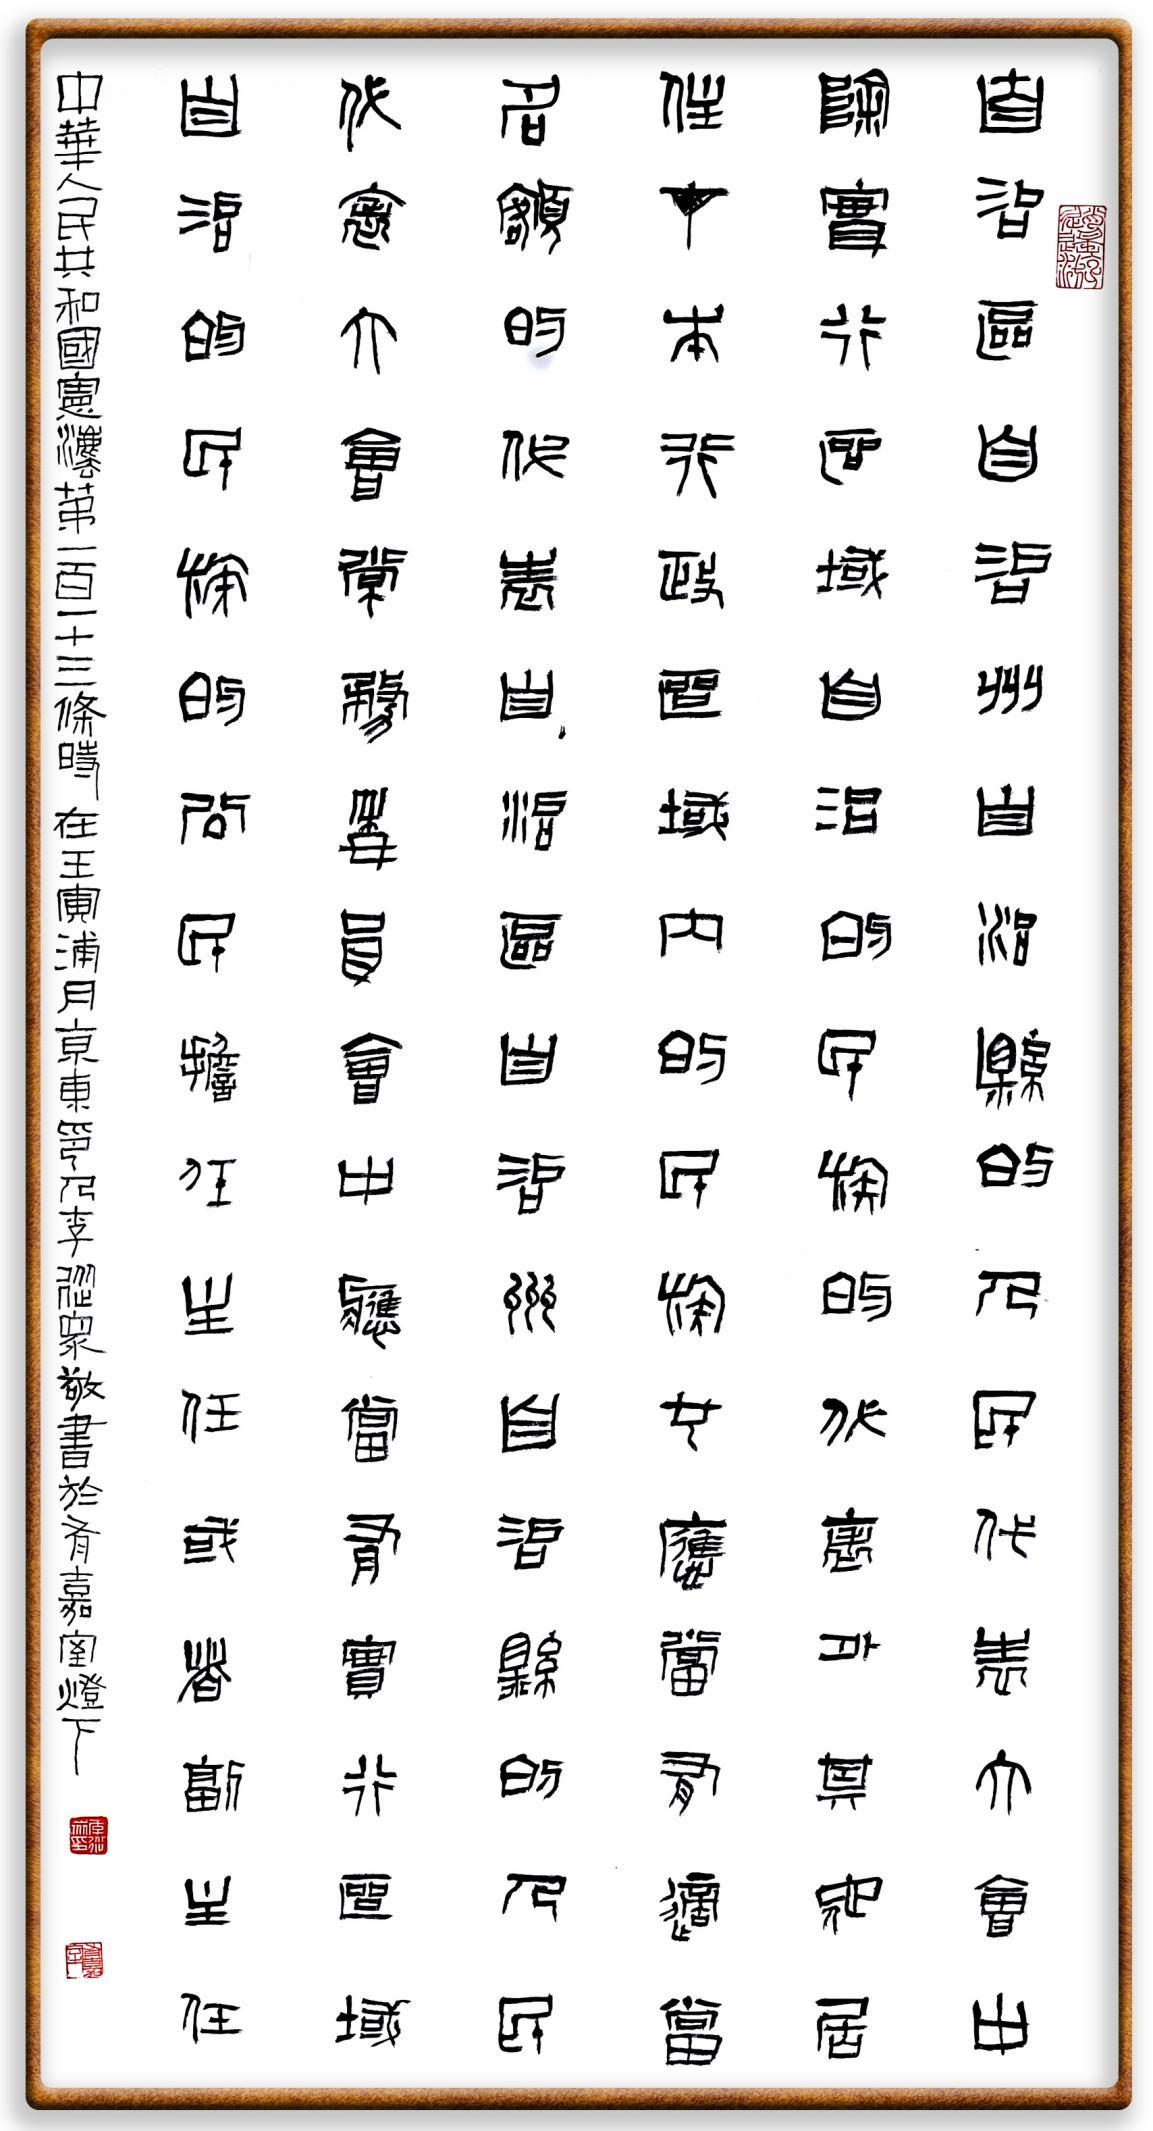 自治區自治州自治縣的人民代表大會中
除實行區域自治的民族的代表外其他居
住在本行政區域內的民族也應當有適當
名額的代表自治區自治州自治縣的人民
代表大會常務委員會中應當有實行區域
自治的民族的公民擔任主任或者副主任
中華人民共和國憲灋第一百一十三條時在壬寅浦月京東印人李從眾敬書於有嘉室燈下